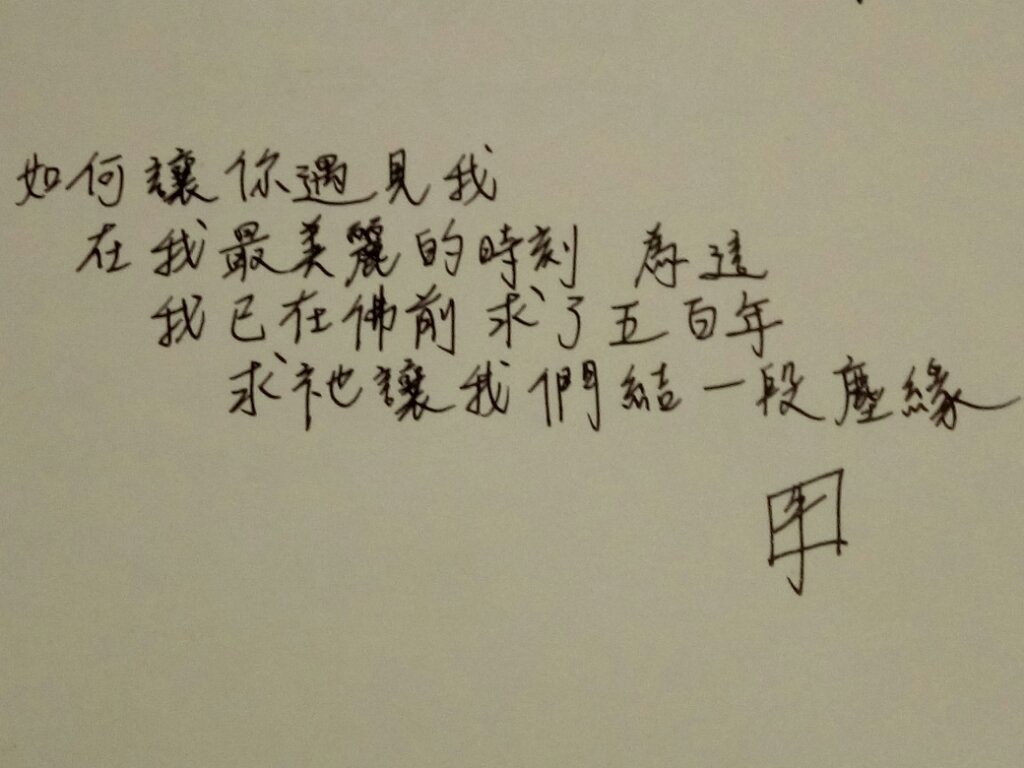 如何讓你遇見我
在我最美麗的時刻 為這
我已在佛前 求了五百年
求祂讓我們結一段塵緣